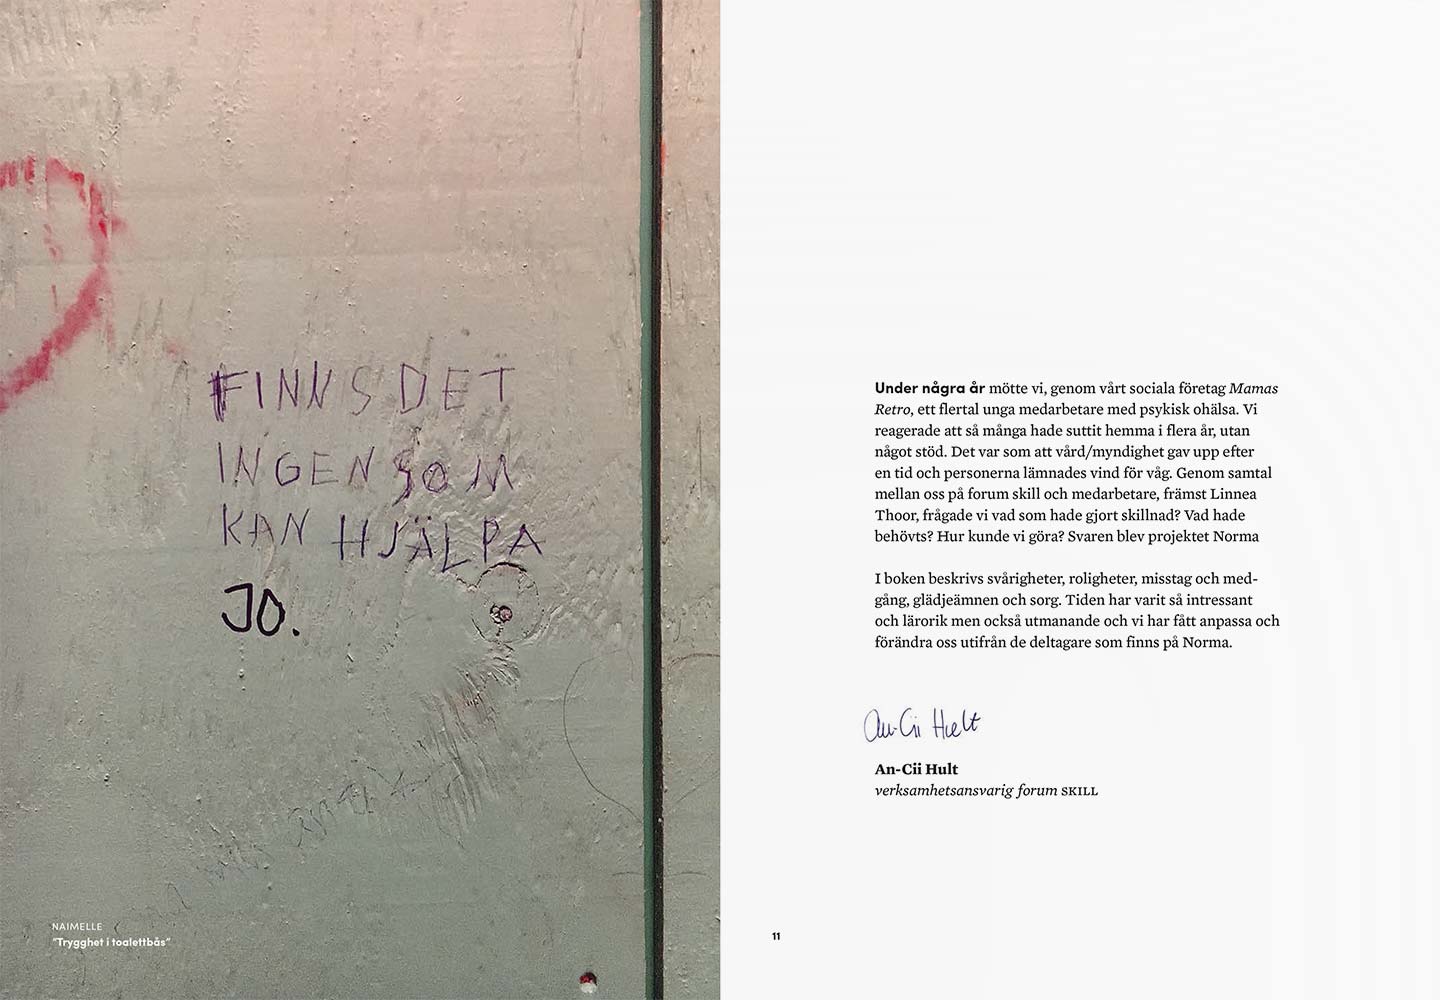 FINNS DET
INGEN SOM
KAN HJÄLPA
JO.
NAIMELLE
"Trygghet i toalettbås"
Under några år mötte vi, genom vårt sociala företag Mamas
Retro, ett flertal unga medarbetare med psykisk ohälsa. Vi
reagerade att så många hade suttit hemma i flera år, utan
något stöd. Det var som att vård/myndighet gav upp efter
en tid och personerna lämnades vind för våg. Genom samtal
mellan oss på forum skill och medarbetare, främst Linnea
Thoor, frågade vi vad som hade gjort skillnad? Vad hade
behövts? Hur kunde vi göra? Svaren blev projektet Norma
I boken beskrivs svårigheter, roligheter, misstag och med-
gång, glädjeämnen och sorg. Tiden har varit så intressant
och lärorik men också utmanande och vi har fått anpassa och
förändra oss utifrån de deltagare som finns på Norma.
An-Cii Hult
An-Cii Hult
verksamhetsansvarig forum SKILL
11